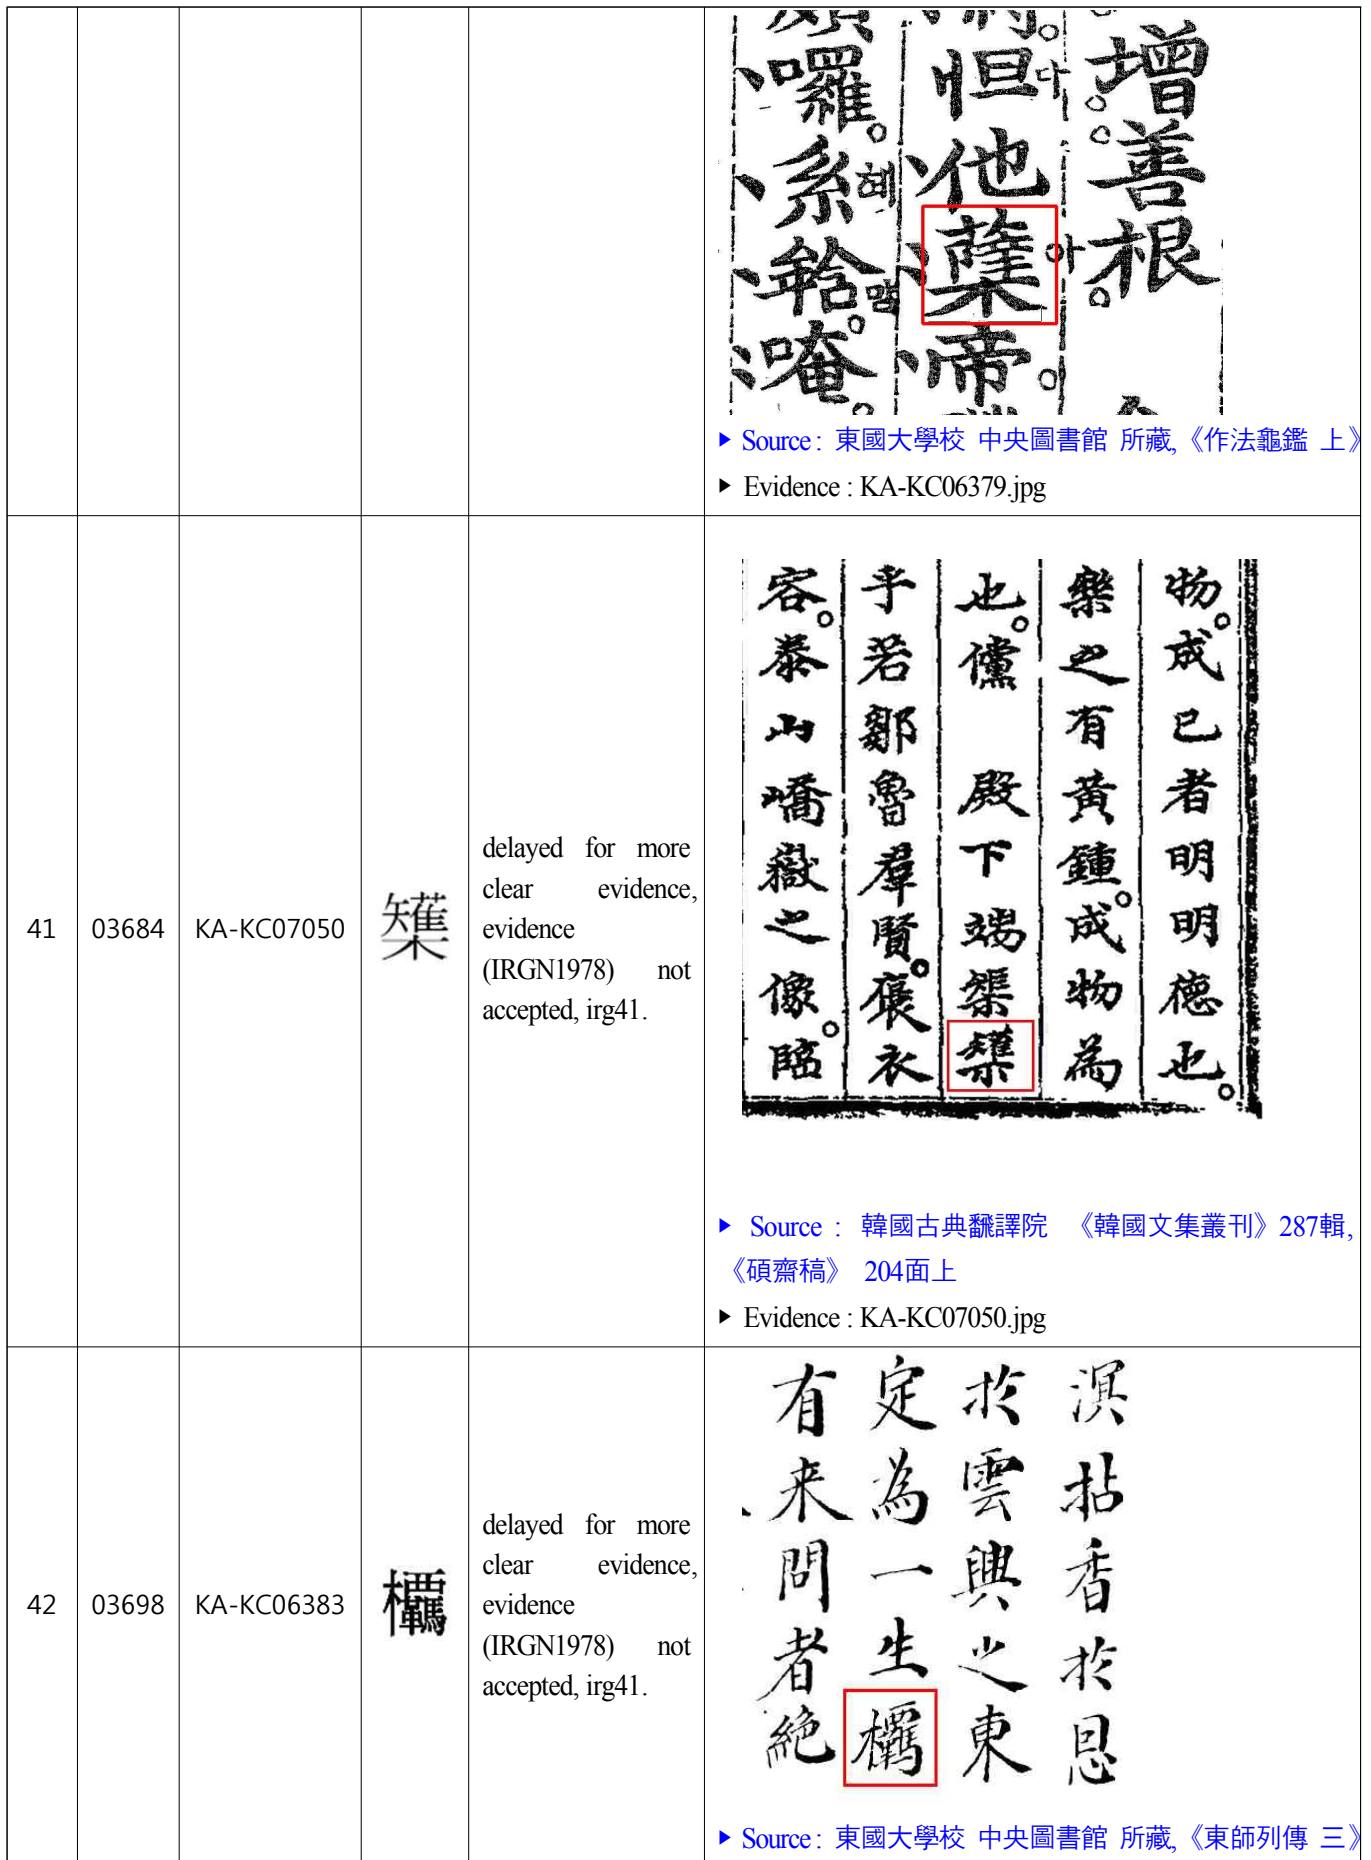 增善根
怛다他아帝
囉。系혜맘。唵
▶ Source : 東國大學校 中央圖書館 所藏,《作法龜鑑 上》
▶ Evidence : KA-KC06379.jpg
41 03684 KA-KC07050
delayed for more
clear evidence,
evidence
(IRGN1978) not
accepted, irg41.
物。成已者明明德也。
樂之有黃鍾。成物為
也。儻 殿下端榘
乎若鄒魯羣賢。褒衣
容。泰山嶠嶽之像。臨
▶ Source : 韓國古典飜譯院 《韓國文集叢刊》287輯,
《碩齋稿》 204面上
▶ Evidence : KA-KC07050.jpg
42 03698 KA-KC06383
delayed for more
clear evidence,
evidence
(IRGN1978) not
accepted, irg41.
溟拈香於恩
於雲興之東
定為一生
有来問者絶
▶ Source : 東國大學校 中央圖書館 所藏,《東師列傳 三》